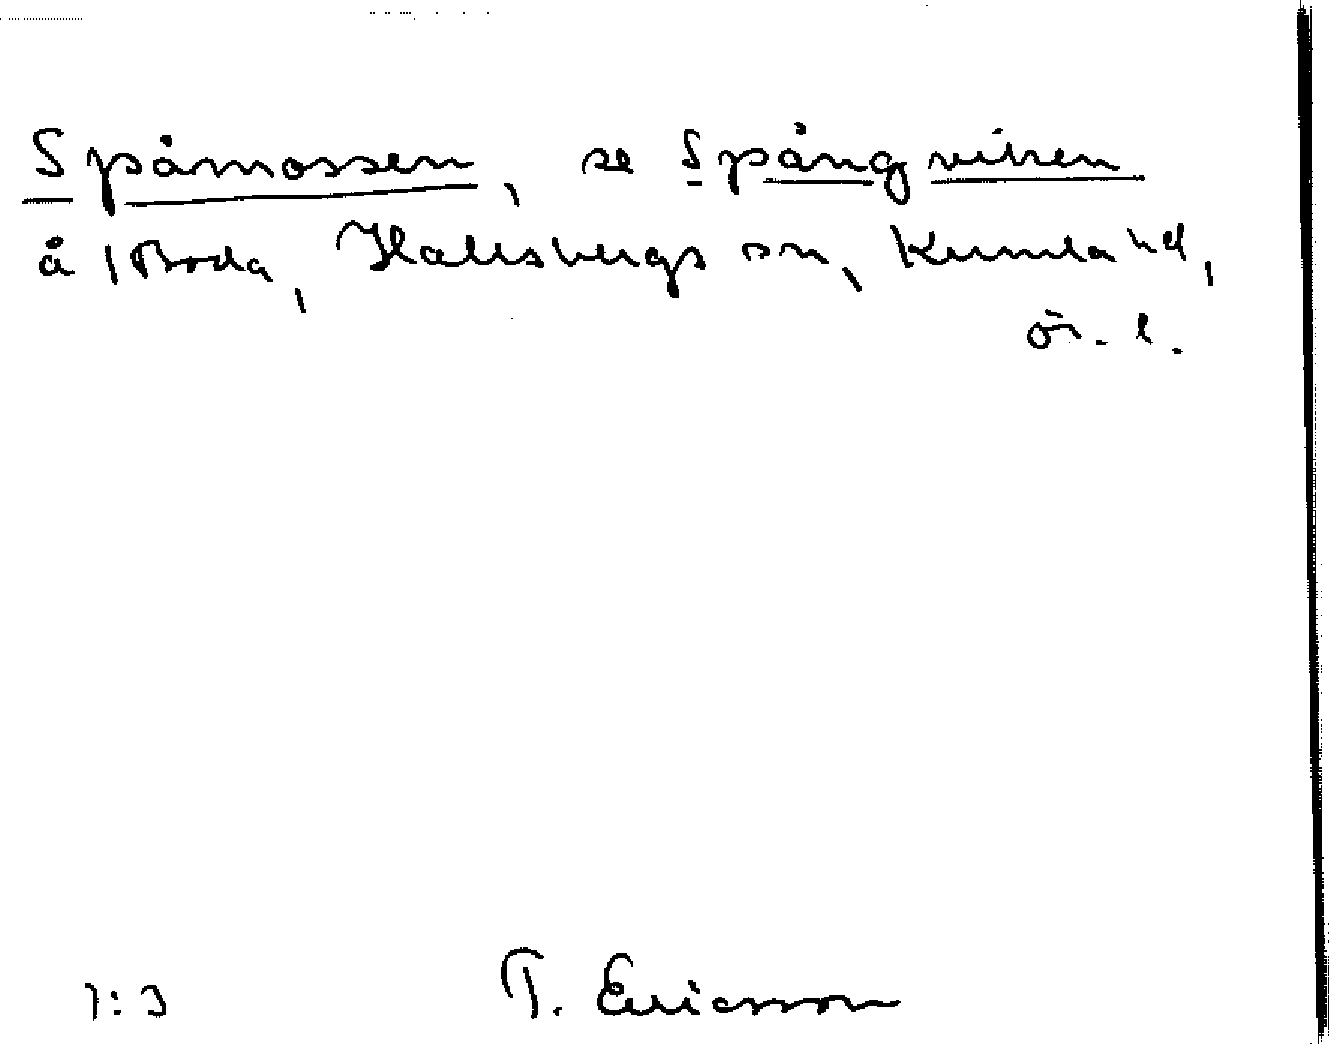 Spåmossen, se Spångvitren
å /Boda, Hallsbergs sn, Kumla hd,
ör. l.
1:3 T. Ericsson